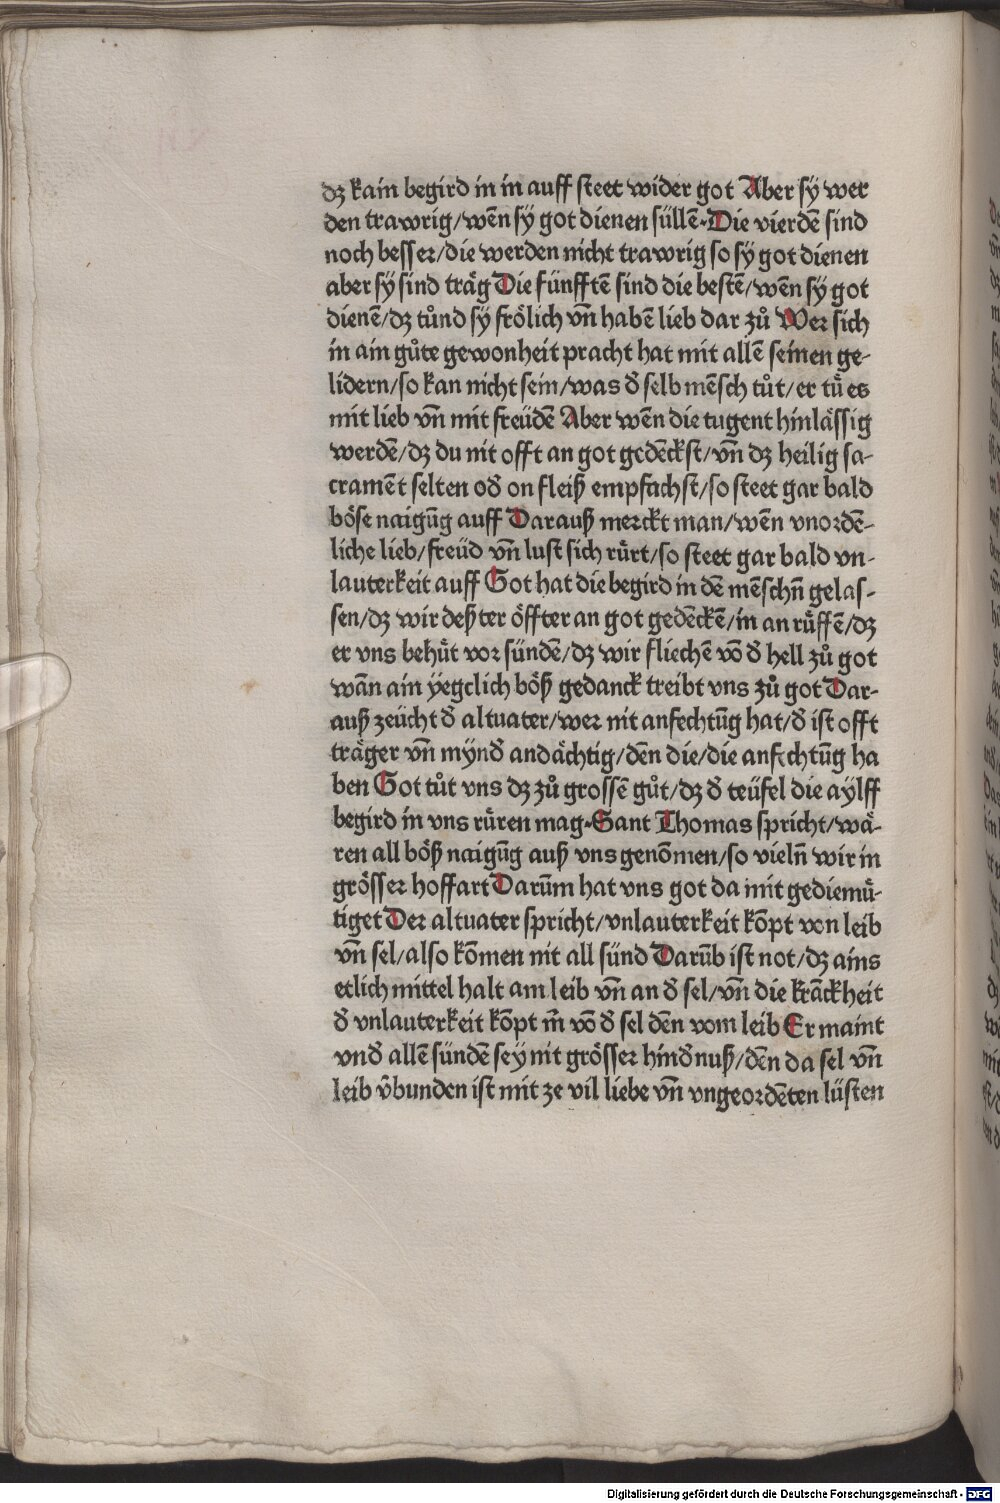 dʒ kain begird in in auff steet wider got Aber sÿ wer
den trawrig/wēn sÿ got dienen süllē·Die vierdē sind
noch besser/die werden nicht trawrig so sÿ got dienen
aber sÿ sind träg Die fünfftē sind die bestē/wēn sÿ got
dienē/dʒ tůnd sÿ frölich vn̄ habē lieb dar zů Wer sich
in ain gůte gewonheit pracht hat mit allē seinen ge-
lidern/so kan nicht sein/was đ selb mēsch tůt/er tü es
mit lieb vn̄ mit freüdē Aber wēn die tugent hinlässig
werdē/dʒ du nit offt an got gedēckst/vn̄ dʒ heilig sa-
cramēt selten ođ on fleiß empfachst/so steet gar bald
böse naigūg auff Darauß merckt man/wēn vnordē-
liche lieb/freüd vn̄ lust sich rürt/so steet gar bald vn-
lauterkeit auff Got hat die begird in dē mēschn̄ gelas-
sen/dʒ wir deßter öffter an got gedēckē/in an rüffē/dʒ
er vns behüt vor sündē/dʒ wir fliechē vō đ hell zů got
wān ain ÿegclich böß gedanck treibt vns zů got Dar-
auß zeücht đ altuater/wer nit anfechtūg hat/đ ist offt
träger vn̄ mÿnđ andächtig/dēn die/die anfechtūg ha
ben Got tůt vns dʒ zů grossē gůt/dʒ đ teüfel die aÿlff
begird in vns rüren mag·Sant Thomas spricht/wä-
ren all böß naigūg auß vns genōmen/so vieln̄ wir in
grösser hoffart Darūm hat vns got da mit gediemü-
tiget Der altuater spricht/vnlauterkeit kōpt von leib
vn̄ sel/also kōmen nit all sünd Darūb ist not/dʒ ains
etlich mittel halt am leib vn̄ an đ sel/vn̄ die krāckheit
đ vnlauterkeit kōpt m̄ vō đ sel dēn vom leib Er maint
vnđ allē sündē seÿ nit grösser hinđnuß/dēn da sel vn̄
leib v̄bunden ist mit ze vil liebe vn̄ vngeordēten lüsten
Digitalisierung gefördert durch die Deutsche Forschungsgemeinschaft - DFG